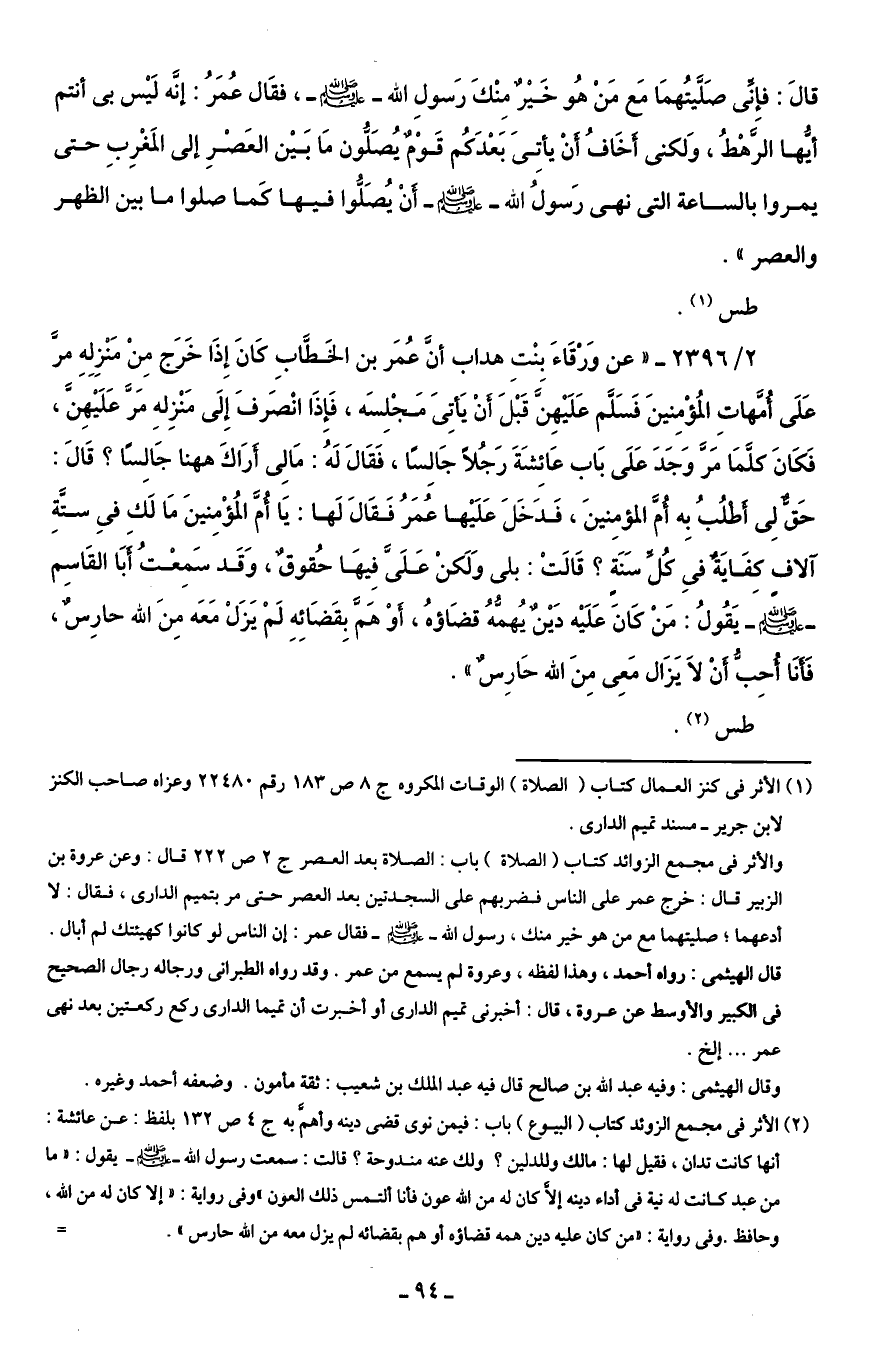 قالَ : فإنِّى صَلَّيتُهمَا مَع مَنْ هُو خَيْرٌ منْكَ رَسولِ الله ـ ﷺ ـ ، فقَال عُمَرُ : إنَّه لَيْس بى أنتم
أيُّها الرَّهْطُ ، وَلكنى أخَافُ أنْ يأتىَ بَعْدَكُم قَومٌ يُصَلُّون مَا بَيْن العَصْرِ إلى المَغْرِبِ حتـى
يمـروا بالســاعة التى نهـى رَسولُ الله ـ ﷺ ـ أنْ يُصَلُّوا فـيـهـا كَمـا صلوا مـا بين الظهر
والعصر » .
طس (١) .
٢/ ٢٣٩٦ ـ « عن وَرْقَاءَ بِنْتِ هداب أنَّ عُمَر بن الخَطَّاب كَانَ إذَا خَرَج مِنْ مَنْزِلِه مرَّ
عَلَى أُمَّهات المُؤْمنينَ فَسَلَّم عَلَيْهنَّ قَبْلَ أنْ يَأتىَ مَجْلسه ، فَإذَا انْصَرفَ إلَى مَنْزله مَرَّ عَلَيْهنَّ ،
فَكَانَ كلَّمَا مَرَّ وَجَدَ عَلَى بَاب عَائشَةَ رَجُلاً جَالسًا ، فَقَالَ لَهُ : مَالى أرَاكَ ههنا جَالسًا ؟ قالَ :
حَقٌّ لِى أطْلُبُ به أُمَّ المؤمنينَ ، فَـدخَلَ عَلَيْها عُمَرُ فَـقَالَ لَهـا : يَا أُمَّ المُؤْمنينَ مَا لَكِ فى ستَّة
آلاف كفَـايَةٌ فى كُلِّ سَنَة ؟ قَالَتْ : بلى وَلكنْ عَـلَىَّ فيهَا حُقوقٌ ، وَقَـد سَمعْـتُ أبَا القَاسم
ـ ﷺ ـ يَقُولُ : مَنْ كَانَ عَلَيْه دَيْنٌ يُهمُّهُ قضَاؤهُ ، أوْ هَمَّ بقَضَائه لَمْ يَزَلْ مَعَه منَ الله حارسٌ ،
فَأنَا أُحبُّ أنْ لاَ يَزَال مَعى منَ الله حَارسٌ » .
طس (٢) .
(١) الأثر فى كنز العـمال كتـاب ( الصلاة ) الوقـات المكروه ج ٨ ص ١٨٣ رقم ٢٢٤٨٠ وعزاه صـاحب الكنز
لابن جرير ـ مسند تميم الدارى .
والأثر فى مجـمع الزوائد كتـاب ( الصلاة ) باب : الصـلاة بعد العـصر ج ٢ ص ٢٢٢ قـال : وعن عروة بن
الزبير قـال : خرج عمر على الناس فـضربهم على السجـدتين بعد العصر حتـى مر بتميم الدارى ، فـقال : لا
أدعهما ؛ صليتهما مع من هو خير منك ، رسول الله ـ ﷺ ـ فقال عمر : إن الناس لو كانوا كهيئتك لم أبال .
قال الهيثمى : رواه أحمد ، وهذا لفظه ، وعروة لم يسمع من عمر . وقد رواه الطبرانى ورجاله رجال الصحيح
فى الكبير والأوسط عن عـروة ، قال : أخبرنى تميم الدارى أو أخـبرت أن تميما الدارى ركع ركعـتين بعد نهى
عمر ... إلخ .
وقال الهيثمى : وفيه عبد الله بن صالح قال فيه عبد الملك بن شعيب : ثقة مأمون . وضعفه أحمد وغيره .
(٢) الأثر فى مجـمع الزوئد كتاب ( البيوع ) باب : فيمن نوى قضى دينه وأهمَّ به ج ٤ ص ١٣٢ بلفظ : عـن عائشة :
أنها كانت تدان ، فقيل لها : مالك وللدلين ؟ ولك عنه مندوحة ؟ قالت : سمعت رسول الله ـ ﷺ ـ يقول : « ما
من عبد كـانت له نية فى أداء دينه إلاَّ كان له من الله عون فأنا ألتـمس ذلك العون »وفى رواية : « إلا كان له من الله ،
وحافظ .وفى رواية : «من كان عليه دين همه قضاؤه أو هم بقضائه لم يزل معه من الله حارس » .
=
ـ ٩٤ ـ